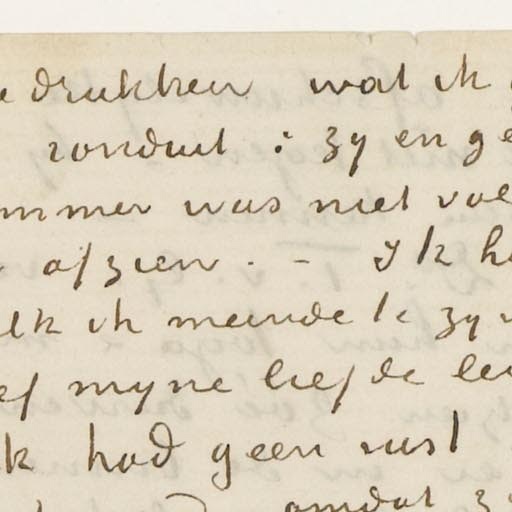 e drukken wat ik
ronduit : zy en ge
mmer was niet vol
afzien. – Ik h
elk ik meende te zyn
ef myne liefde le
k had geen rust
omdat z